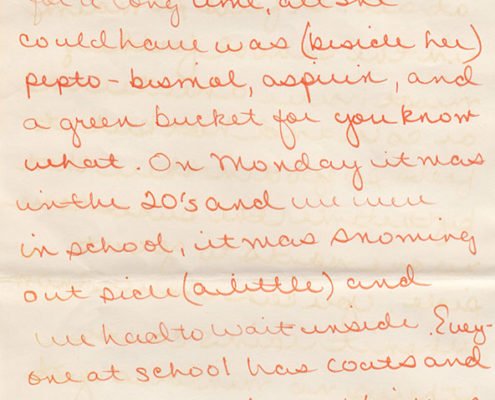 for a long time, all she
could have was (beside her)
pepto-bismol, aspirin, and
a green bucket for you know
what. On Monday it was
in the 20's and we were
in school, it was snowing
out side (a little) and
we had to wait inside. Every-
one at school has coats and